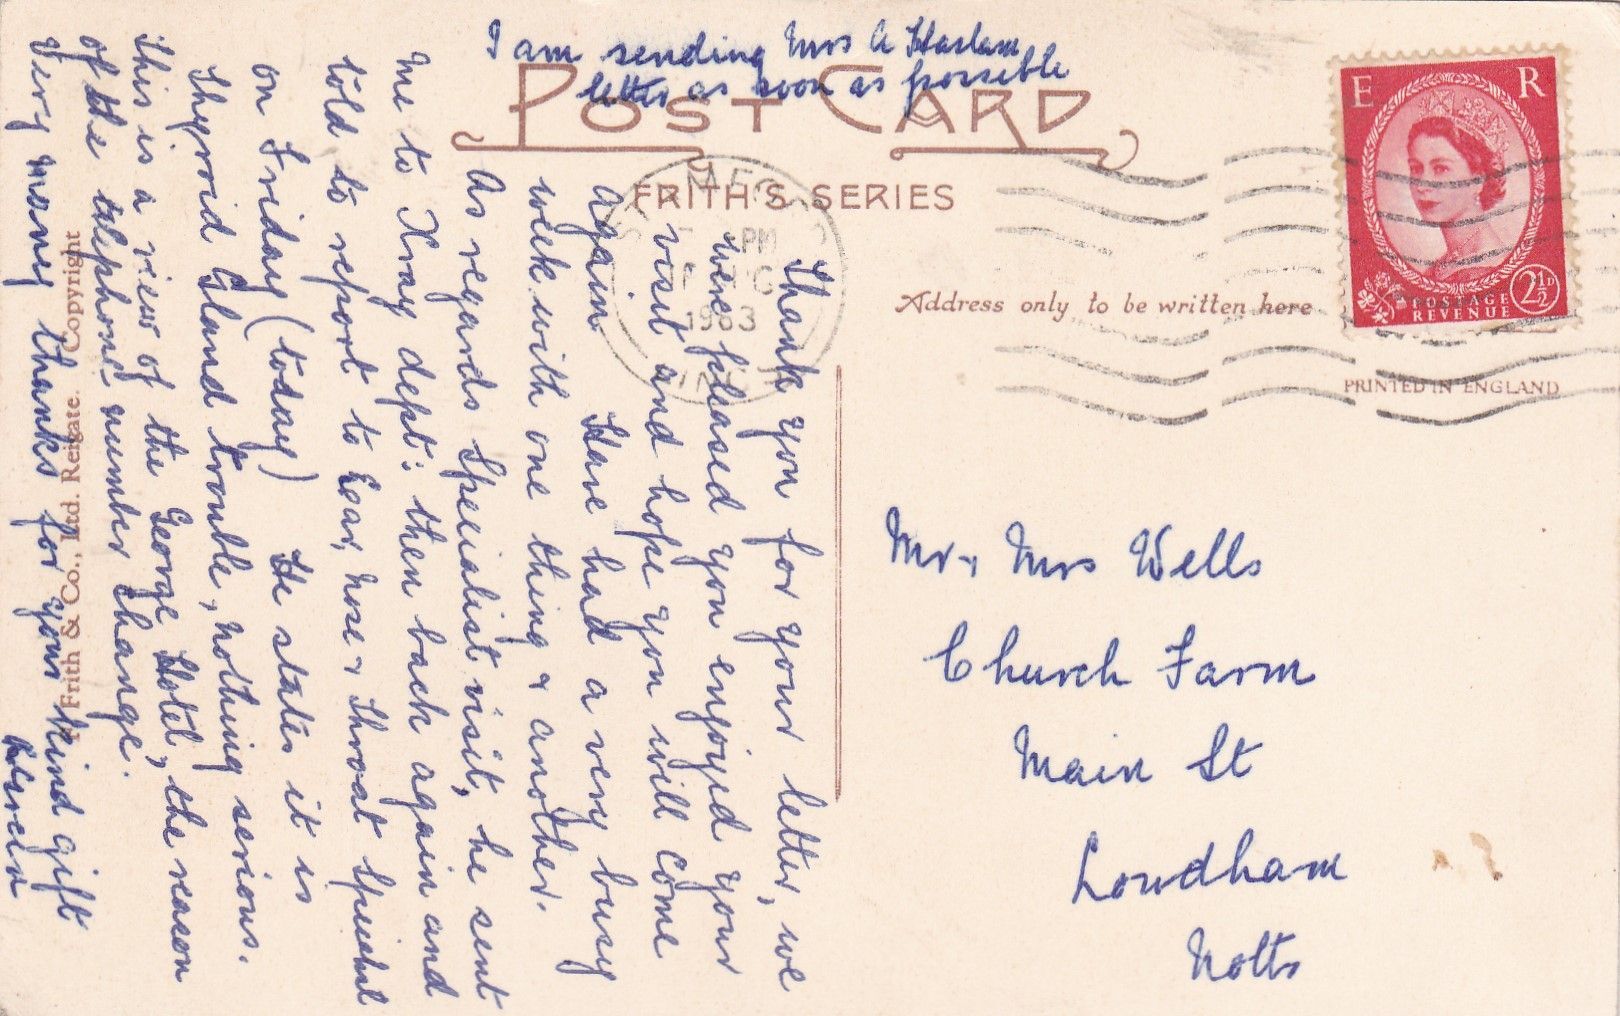 I am sending Mrs A Haslam
letter as soon as possible
POST CARD
FRITH'S SERIES
Address only to be written here
E R
POSTAGE
REVENUE
2½D
PRINTED IN ENGLAND
PM
1963
Thank you for your letter, we
were pleased you enjoyed your
visit and hope you will come
again. Have had a very busy
week with one thing & another.
As regards Specialist visit, he sent
me to Xray dept: then back again and
told to report to Ear, Nose & Throat Specialist
on Friday (today) He states it is
Thyroid Gland trouble, nothing serious.
This is a view of the George Hotel, the reason
of the telephone number change.
Very money thanks for your kind gift
F. Frith & Co., Ltd. Reigate. Copyright
Mr & Mrs Wells
Church Farm
Main St
Lowdham
Notts